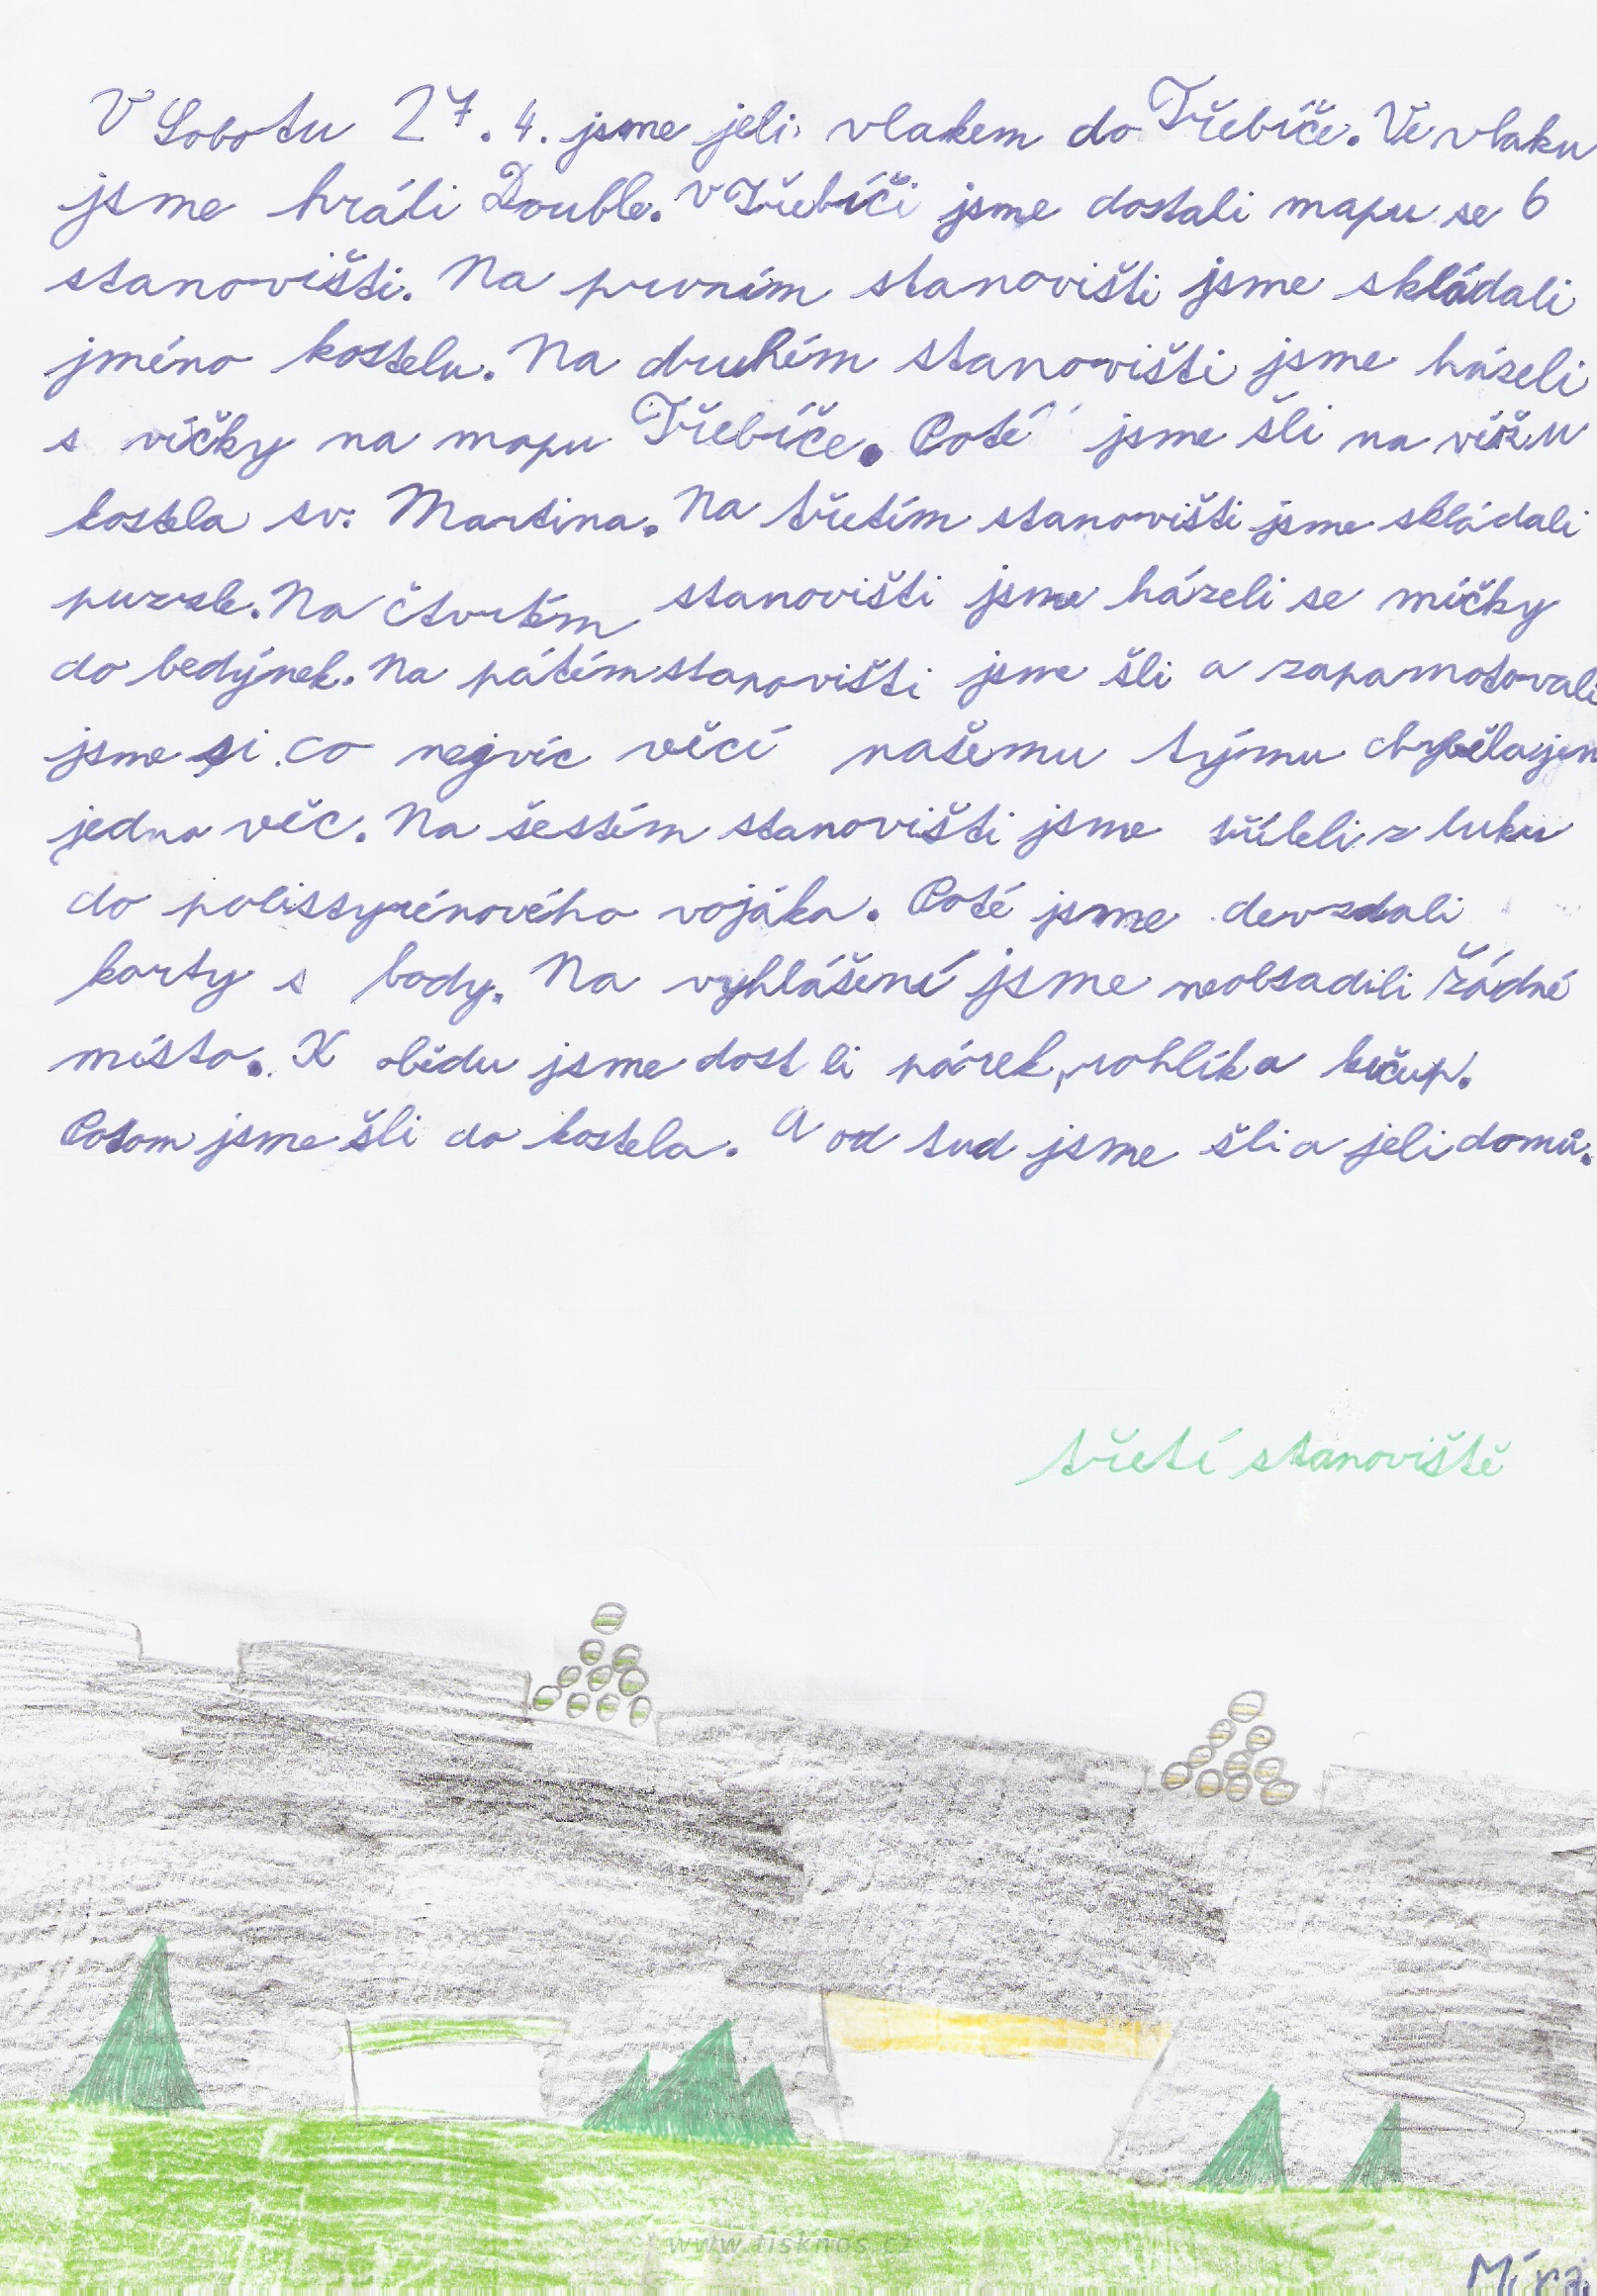 V Sobotu 27. 4. jsme jeli vlakem do Třebíče. Ve vlaku
jsme hráli Double. V Třebíči jsme dostali mapu se 6
stanovišti. Na prvním stanovišti jsme skládali
jméno kostelu. Na druhém stanovišti jsme házeli
s víčky na mapu Třebíče. Poté jsme šli na věžu
kostela sv. Martina. Na třetím stanovišti jsme skládali
puzzle. Na čtvrtém stanovišti jsme házeli se míčky
do bedýnek. Na pátém stanovišti jsme šli a zapamotovali
jsme si co nejvíc věcí našemu týmu chyběla jen
jedna věc. Na šestém stanovišti jsme stříleli z luku
do polistyrénového vojáka. Poté jsme devzdali
karty s body. Na vyhlášení jsme neobsadili žádné
místo. K obědu jsme dost li párek, rohlík a kečup.
Potom jsme šli do kostela. A od tud jsme šli a jeli domů.
třetí stanoviště
www.tisknos.cz